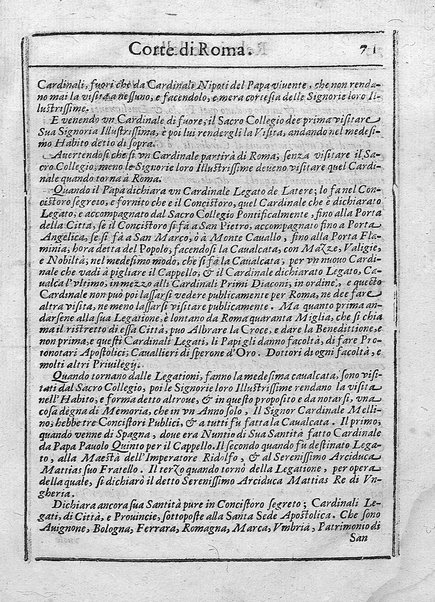 Corte di Roma. 71
Cardinali, fuori che da Cardinali Nipoti del Papa viuente, che non rendano
mai la visita a nessuno, e facendolo, e mera cortesia delle Signorie loro Illustrissime.
E venendo vn Cardinale di fuore, il Sacro Collegio dee prima visitare
Sua Signoria Illustrissima, è poi lui rendergli la Visita, andando nel medesimo
Habito detto di sopra.
Auertendosi che si vn Cardinale partirà di Roma, senza visitare il Sacro
Collegio, meno le Signorie loro Illustrissime deueno visitare quel Cardinale
quando torna a Roma.
Quando il Papà dichiara vn Cardinale Legato de Latere; lo fa nel Concistoro
segreto, e fornito che e il Concistoro, quel Cardinale che è dichiarato
Legato, e accompagnato dal Sacro Collegio Pontificalmente, fino alla Porta
della Città, se il Concistoro si fa a San Pietro, accompagnato fino a Porta
Angelica, se si fà a San Marco, ò a Monte Cauallo, fino alla Porta Flaminia,
hora detta del Popolo, facendosi la Caualcata, con Mazze, Valigie,
e Nobiltà, nel medesimo modo, che si fà la Caualcata, per vn nuouo Cardinale
che vadi à pigliare il Cappello, & il Cardinale dichiarato Legato, Caualca
l'vltimo, in mezzo alli Cardinali Primi Diaconi, in ordine, e questo
Cardinale non può poi lassarsi vedere publicamente per Roma, ne dee fare
altra visita, ne meno lassarsi visitare publicamente. Ma quanto prima andarsene
alla sua Legatione, e lontano da Roma quaranta Miglia, che si chiama
il ristretto di essa Città, puo Albrare la Croce, e dare la Benedittione, e
non prima, e questi Cardinali Legati, li Papi gli danno facoltà, di fare Protonotari
Apostolici, Cauallieri di sperone d'Oro. Dottori di ogni facoltà, e
molti altri Priuilegij.
Quando tornano dalle Legationi, fanno la medesima caualcata, sono visitati
dal Sacro Collegio, poi le Signorie loro Illustrissime rendano la visita
nell'Habito, e forma detto altroue, & in questo proposito e da notarsi, vna
cosa degna di Memoria, che in vn Anno solo, Il Signor Cardinale Mellino,
hebbe tre Concistori Publici, & a tutti fu fatta la Caualcata. Il primo,
quando venne di Spagna, doue era Nuntio di Sua Santità fatto Cardinale
da Papa Pauolo Quinto per il Cappello. Il secondo quando fu destinato Legato,
alla Maestà dell'Imperatore Ridolfo, & al Serenissimo Arciduca
Mattias suo Fratello. Il terzo quando tornò della Legatione, per opera
della quale, si dichiarò il detto Serenissimo Arciduca Mattias Re di Vngheria.
Dichiara ancora sua Santità pure in Concistoro segreto; Cardinali Legati,
di Città, e Prouincie, sottoposte alla Santa Sede Apostolica. Che sono
Auignone, Bologna, Ferrara, Romagna, Marca, Vmbria, Patrimonio di
San